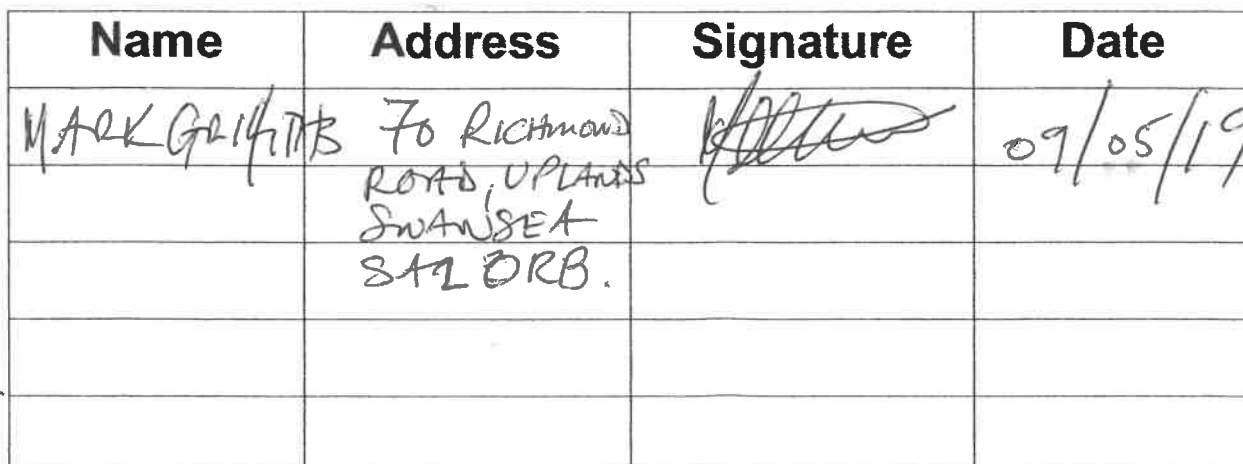 Name Address Signature Date
MARK GRIFFITHS 70 RICHMOND 09/05/19
ROAD, UPLANDS
SWANSEA
SA2 0RB.